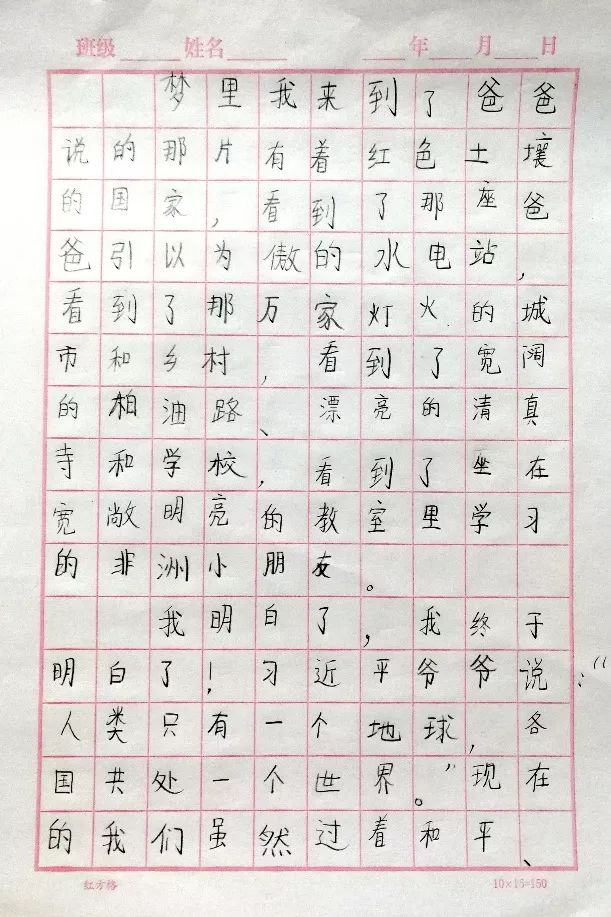 班级 姓名 年 月 日
梦里我来到了爸爸
说的那片有着红色土壤
的国家，看到了那座爸
爸引以为傲的水电站，
看到了那万家灯火的城
市和乡村，看到了宽阔
的柏油路、漂亮的清真
寺和学校，看到了坐在
宽敞明亮的教室里学习
的非洲小朋友。
我明白了，我终于
明白了！习近平爷爷说：“
人类只有一个地球，各
国共处一个世界。”现在
的我们虽然过着和平、
红方格 10×15=150